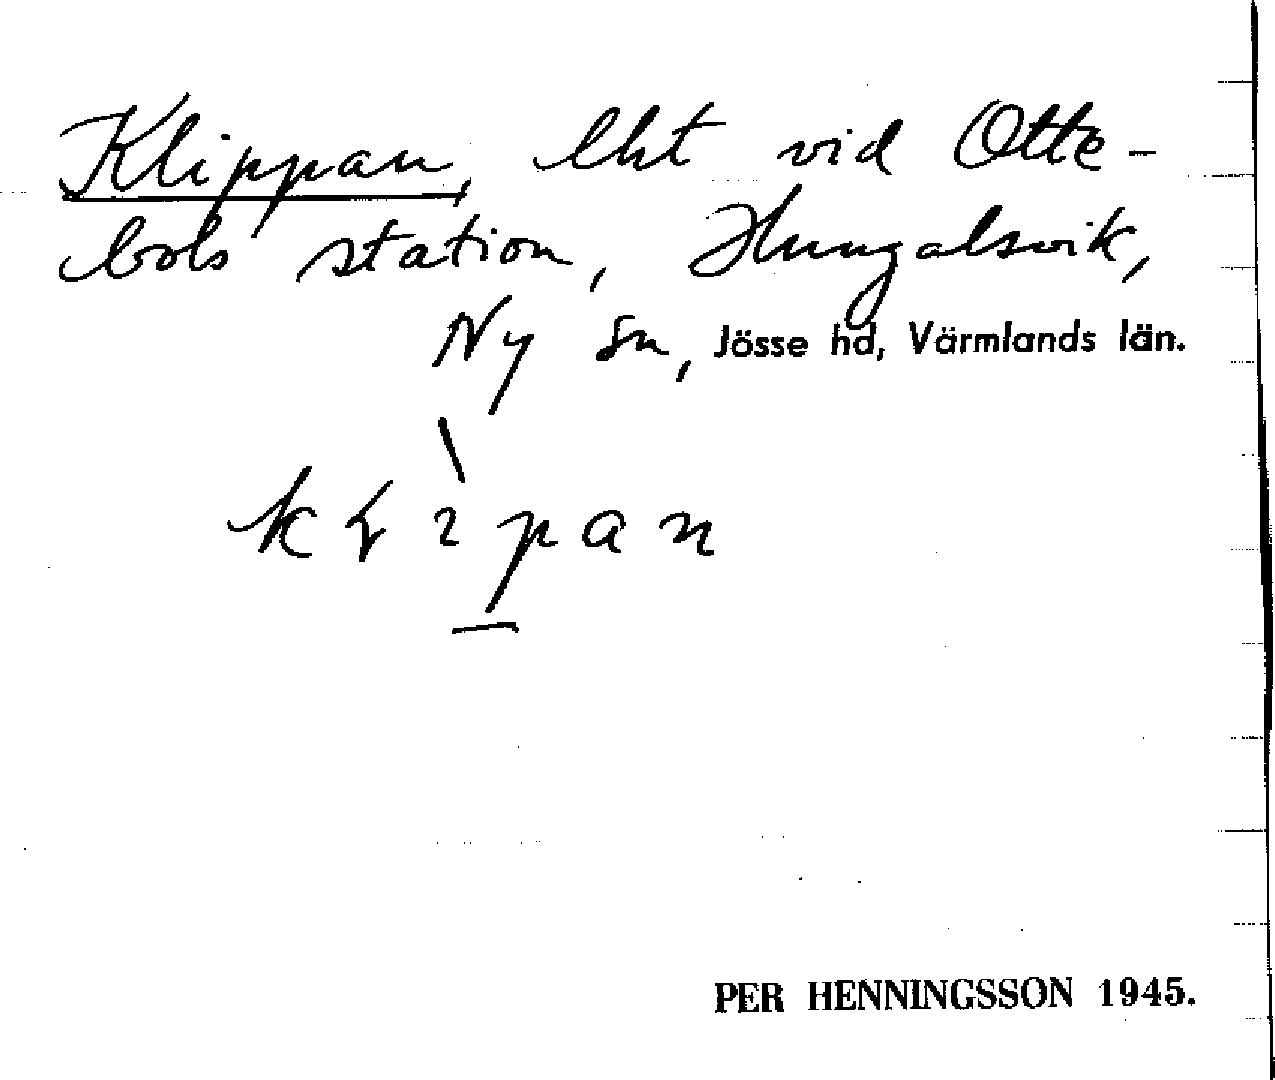 Klippan, lht vid Otte-
bols station, Hungalsvik,
Ny sn, Jösse hd, Värmlands län.
kłìpan
PER HENNINGSSON 1945.